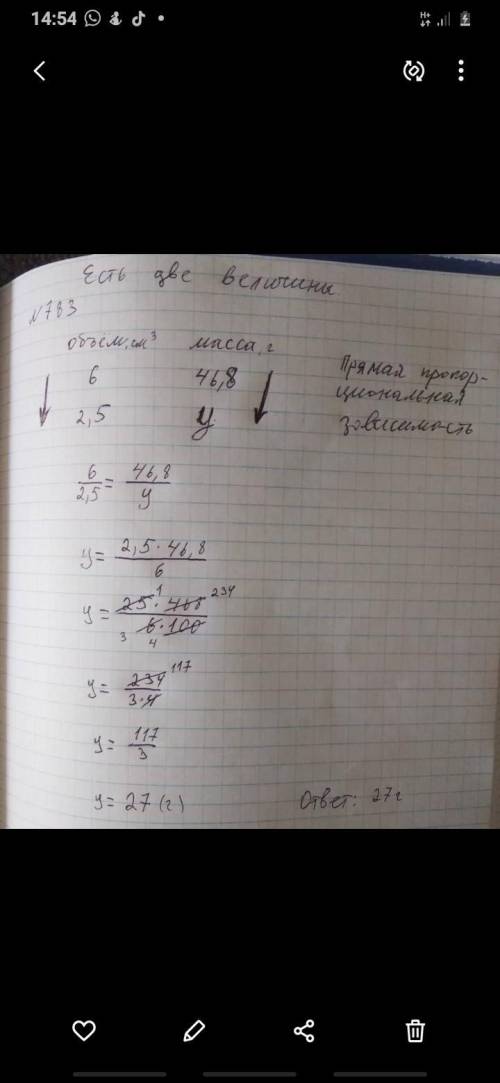 14:54
Есть две величины
№783
объём, см³ масса, г
6 46,8 Прямая пропор-
циональная
2,5 y зависимость
6/2,5 = 46,8/y
y = 2,5 · 46,8/6
y = 25 · 468/6 · 100 1 234 3 4
y = 234/3·4 117
y = 117/3
y = 27 (г) Ответ: 27 г